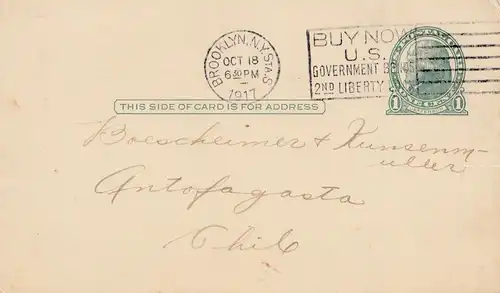 BROOKLYN, N.Y. STA S.
OCT 18
6 30 PM
1917
BUY NOW
U.S.
GOVERNMENT BONDS
2ND LIBERTY
1
1
THIS SIDE OF CARD IS FOR ADDRESS
Boescheimer & Kunsenm-
uller
Antofagasta
Chile